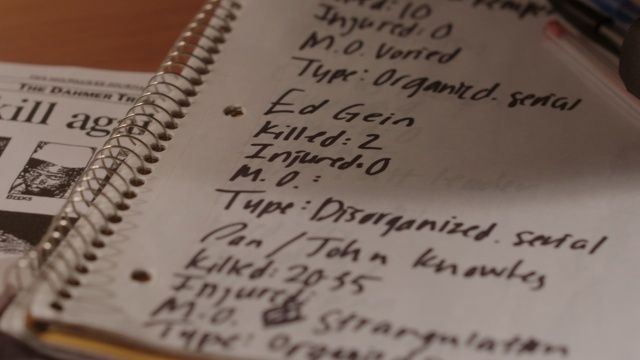 Killed: 10
Injured: 0
M.O. Varied
Type: Organizd. serial
Ed Gein
Killed: 2
Injured: 0
M.O.:
Type: Disorganized. serial
John Knowles
Killed: 20-35
Injured:
M.O. Strangulation
Type:
THE DAHMER
kill again